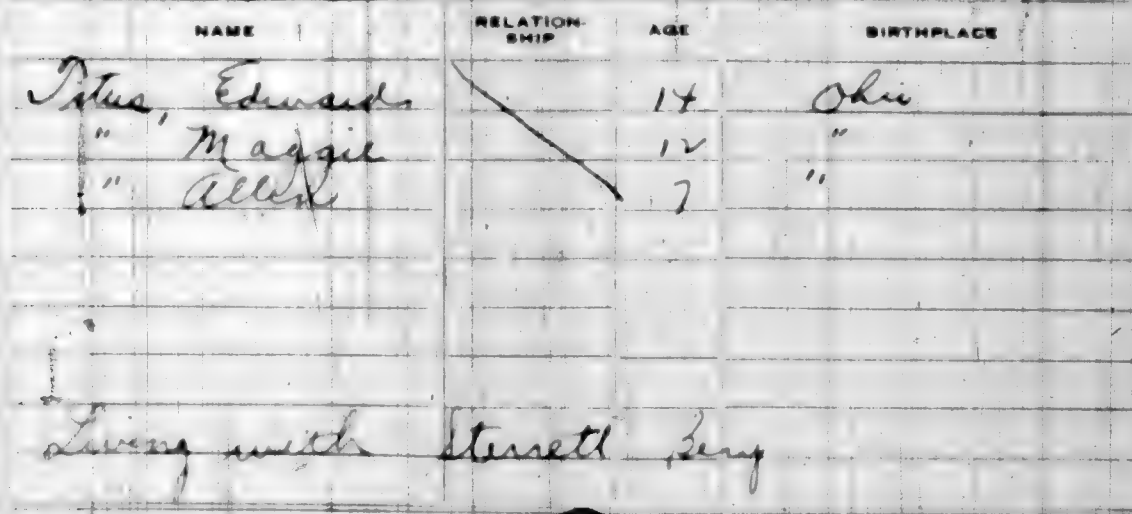 NAME RELATION-SHIP AGE BIRTHPLACE
Titus, Edward 14 Ohio
" Maggie 12 "
" Allen 7 "
Living with Sterrett